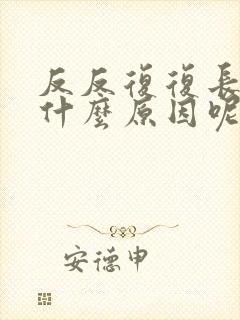 反反復復長
什麼原因呢
安德申